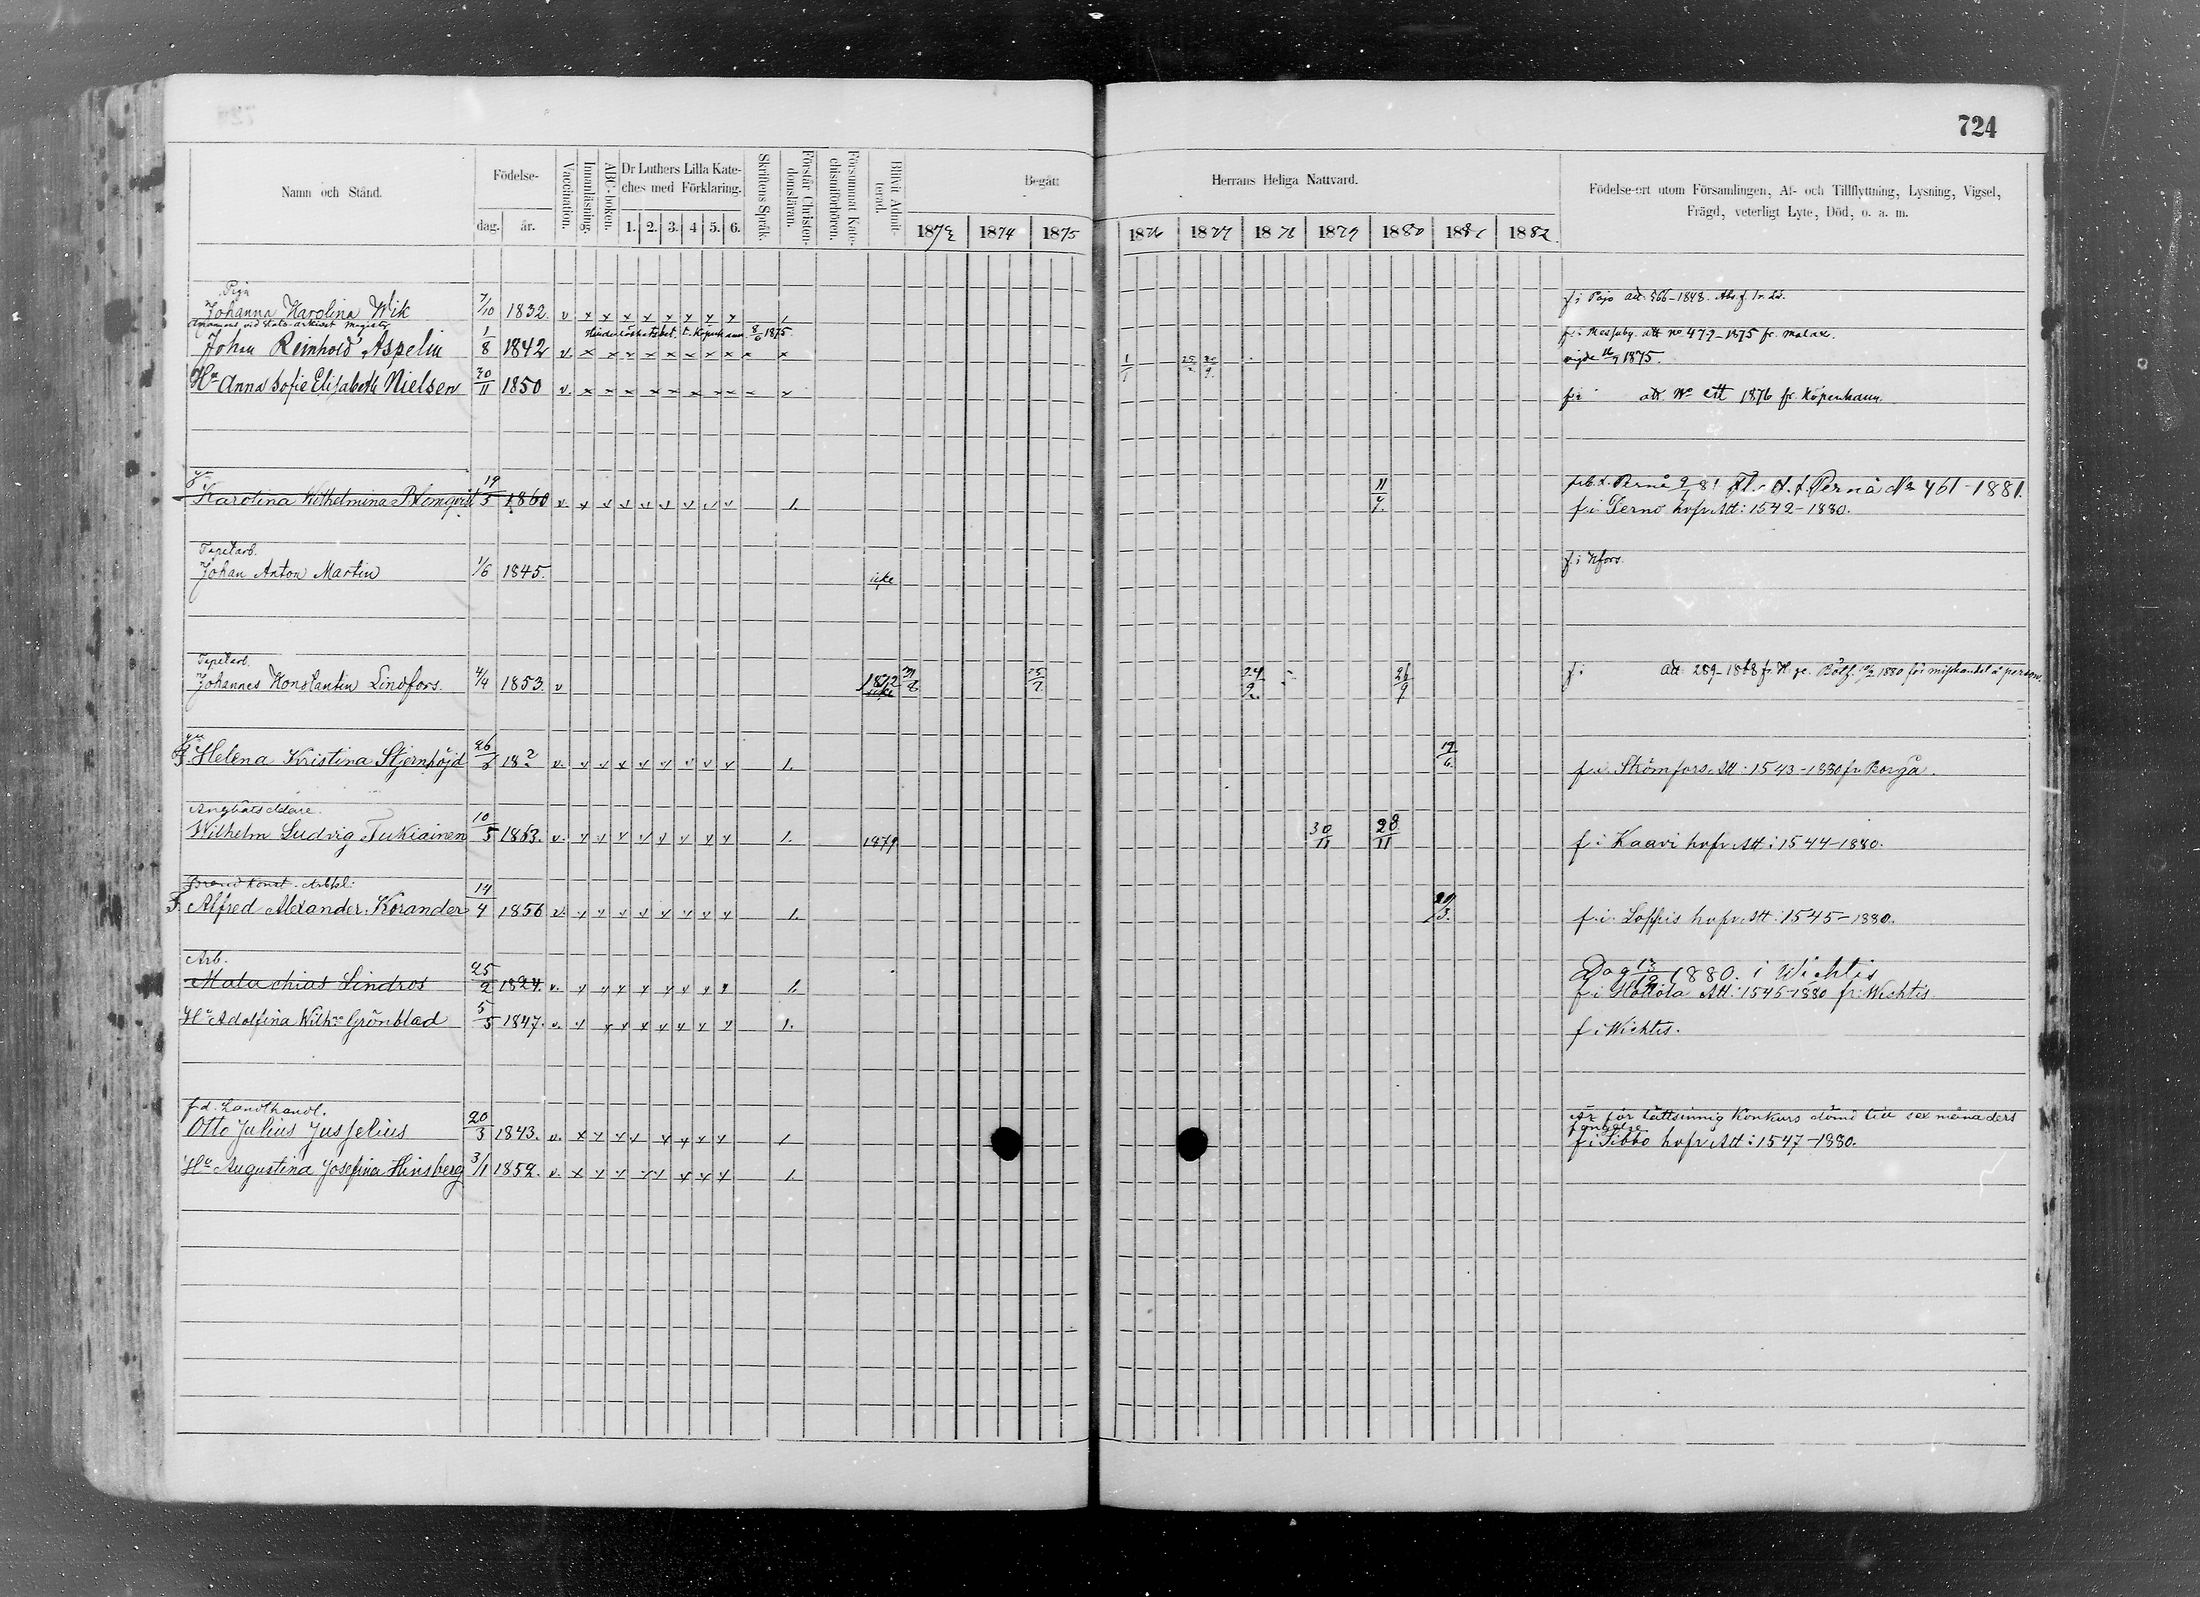 724
Namn och Stånd.
Födelse-
dag.
år.
Vaccination.
Innanläsning.
ABC-boken.
Dr Luthers Lilla Kate-
ches med Förklaring.
1. 2. 3. 4 5. 6.
Skriftens Språk.
Förstår Christen-
domsläran.
Försummat Kate-
chismiförhören.
Blifvit Admit-
terad.
Begått
Herrans Heliga Nattvard.
1873 1874 1875 1876 1877 1878 1879 1880 1881 1882
Födelse-ort utom Församlingen, Af- och Tillflyttning, Lysning, Vigsel,
Frägd, veterligt Lyte, Död, o. a. m.
Piga
Johanna Karolina Wik 7/10 1832. v
f. i Pojo att. 566-1848.
Amanuens vid Stats-arkivet Magister
Hinderlöshetsbet. t. Köpenhamn 8/6 1875.
Johan Reinhold Aspelin 1/8 1842 v.
att No 479-1875 fr. Malax.
vigde 1875.
Hu Anna Sofie Elisabeth Nielsen 30/11 1850 v.
f. i att No ett 1876 fr. Köpenhamn.
Karolina Wilhelmina Blomqvist 19/5 1860 v. 1. 11/7.
Pernå No 461-1881.
f. i Perno hofr. Att: 1542-1880.
Tapetarb.
Johan Anton Martin 1/6 1845. icke
f. i Hfors.
Tapetarb.
Johannes Konstantin Lindfors. 4/4 1853. v 1872 icke
26/9
f. i att. 289-1868 fr. Böt. 1880 för misshandel å person.
Helena Kristina Stjernhöjd 26 18? v. 1. 19/6.
f. i Strömfors. Att: 1543-1880 fr. Borgå.
Ångbåtseldare.
Wilhelm Ludvig Tukiainen 10/5 1863. v. 1. 1879 30/11 28/11
f. i Kaavi hofr. Att: 1544-1880.
Alfred Alexander Korander 14/4 1856 v. 1.
f. i. Loppis hofr. Att: 1545-1880.
Arb.
Malachias Lindros 25/2 1824. v. 1.
Dog 13/12 1880. i Wichtis
f. i Hollola Att: 1546-1880 fr. Wichtis.
Hu Adolfina Wilhna Grönblad 5/5 1847. v. 1.
f. i Wichtis.
f.d. Landthandl.
Otto Julius Jusselius 20/3 1843. v. 1
Är för lättsinnig Konkurs dömd till sex månaders
fängelse
f. i Sibbo hofr. Att: 1547-1880.
Hu Augustina Josefina Hinsberg 3/1 1852. v. 1.